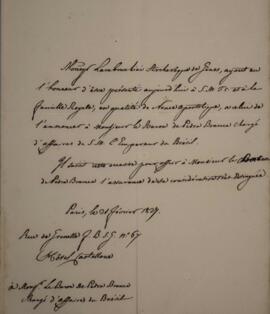 Monsgr Lambruschini Archevêque de Gênes, ayant eu
l'honneur d'être présenté aujourd'hui à S. M. T. C. et à la
famille Royale, en qualité de Nonce Apostolique, a
l'annoncer à Monsieur le Baron de Pedra Branca Chargé
d'affaires de S. M. l'Empereur du Brésil.
Il saisit cette occasion pour offrir à Monsieur le Baron
de Pedra Branca l'assurance de sa considération très distinguée
Paris, le 21 février 1827.
Rue de Grenelle f. B. S. G. nº 67
Hôtel Castellane
à Monsr. Le Baron de Pedra Branca
Chargé d'affaires du Brésil